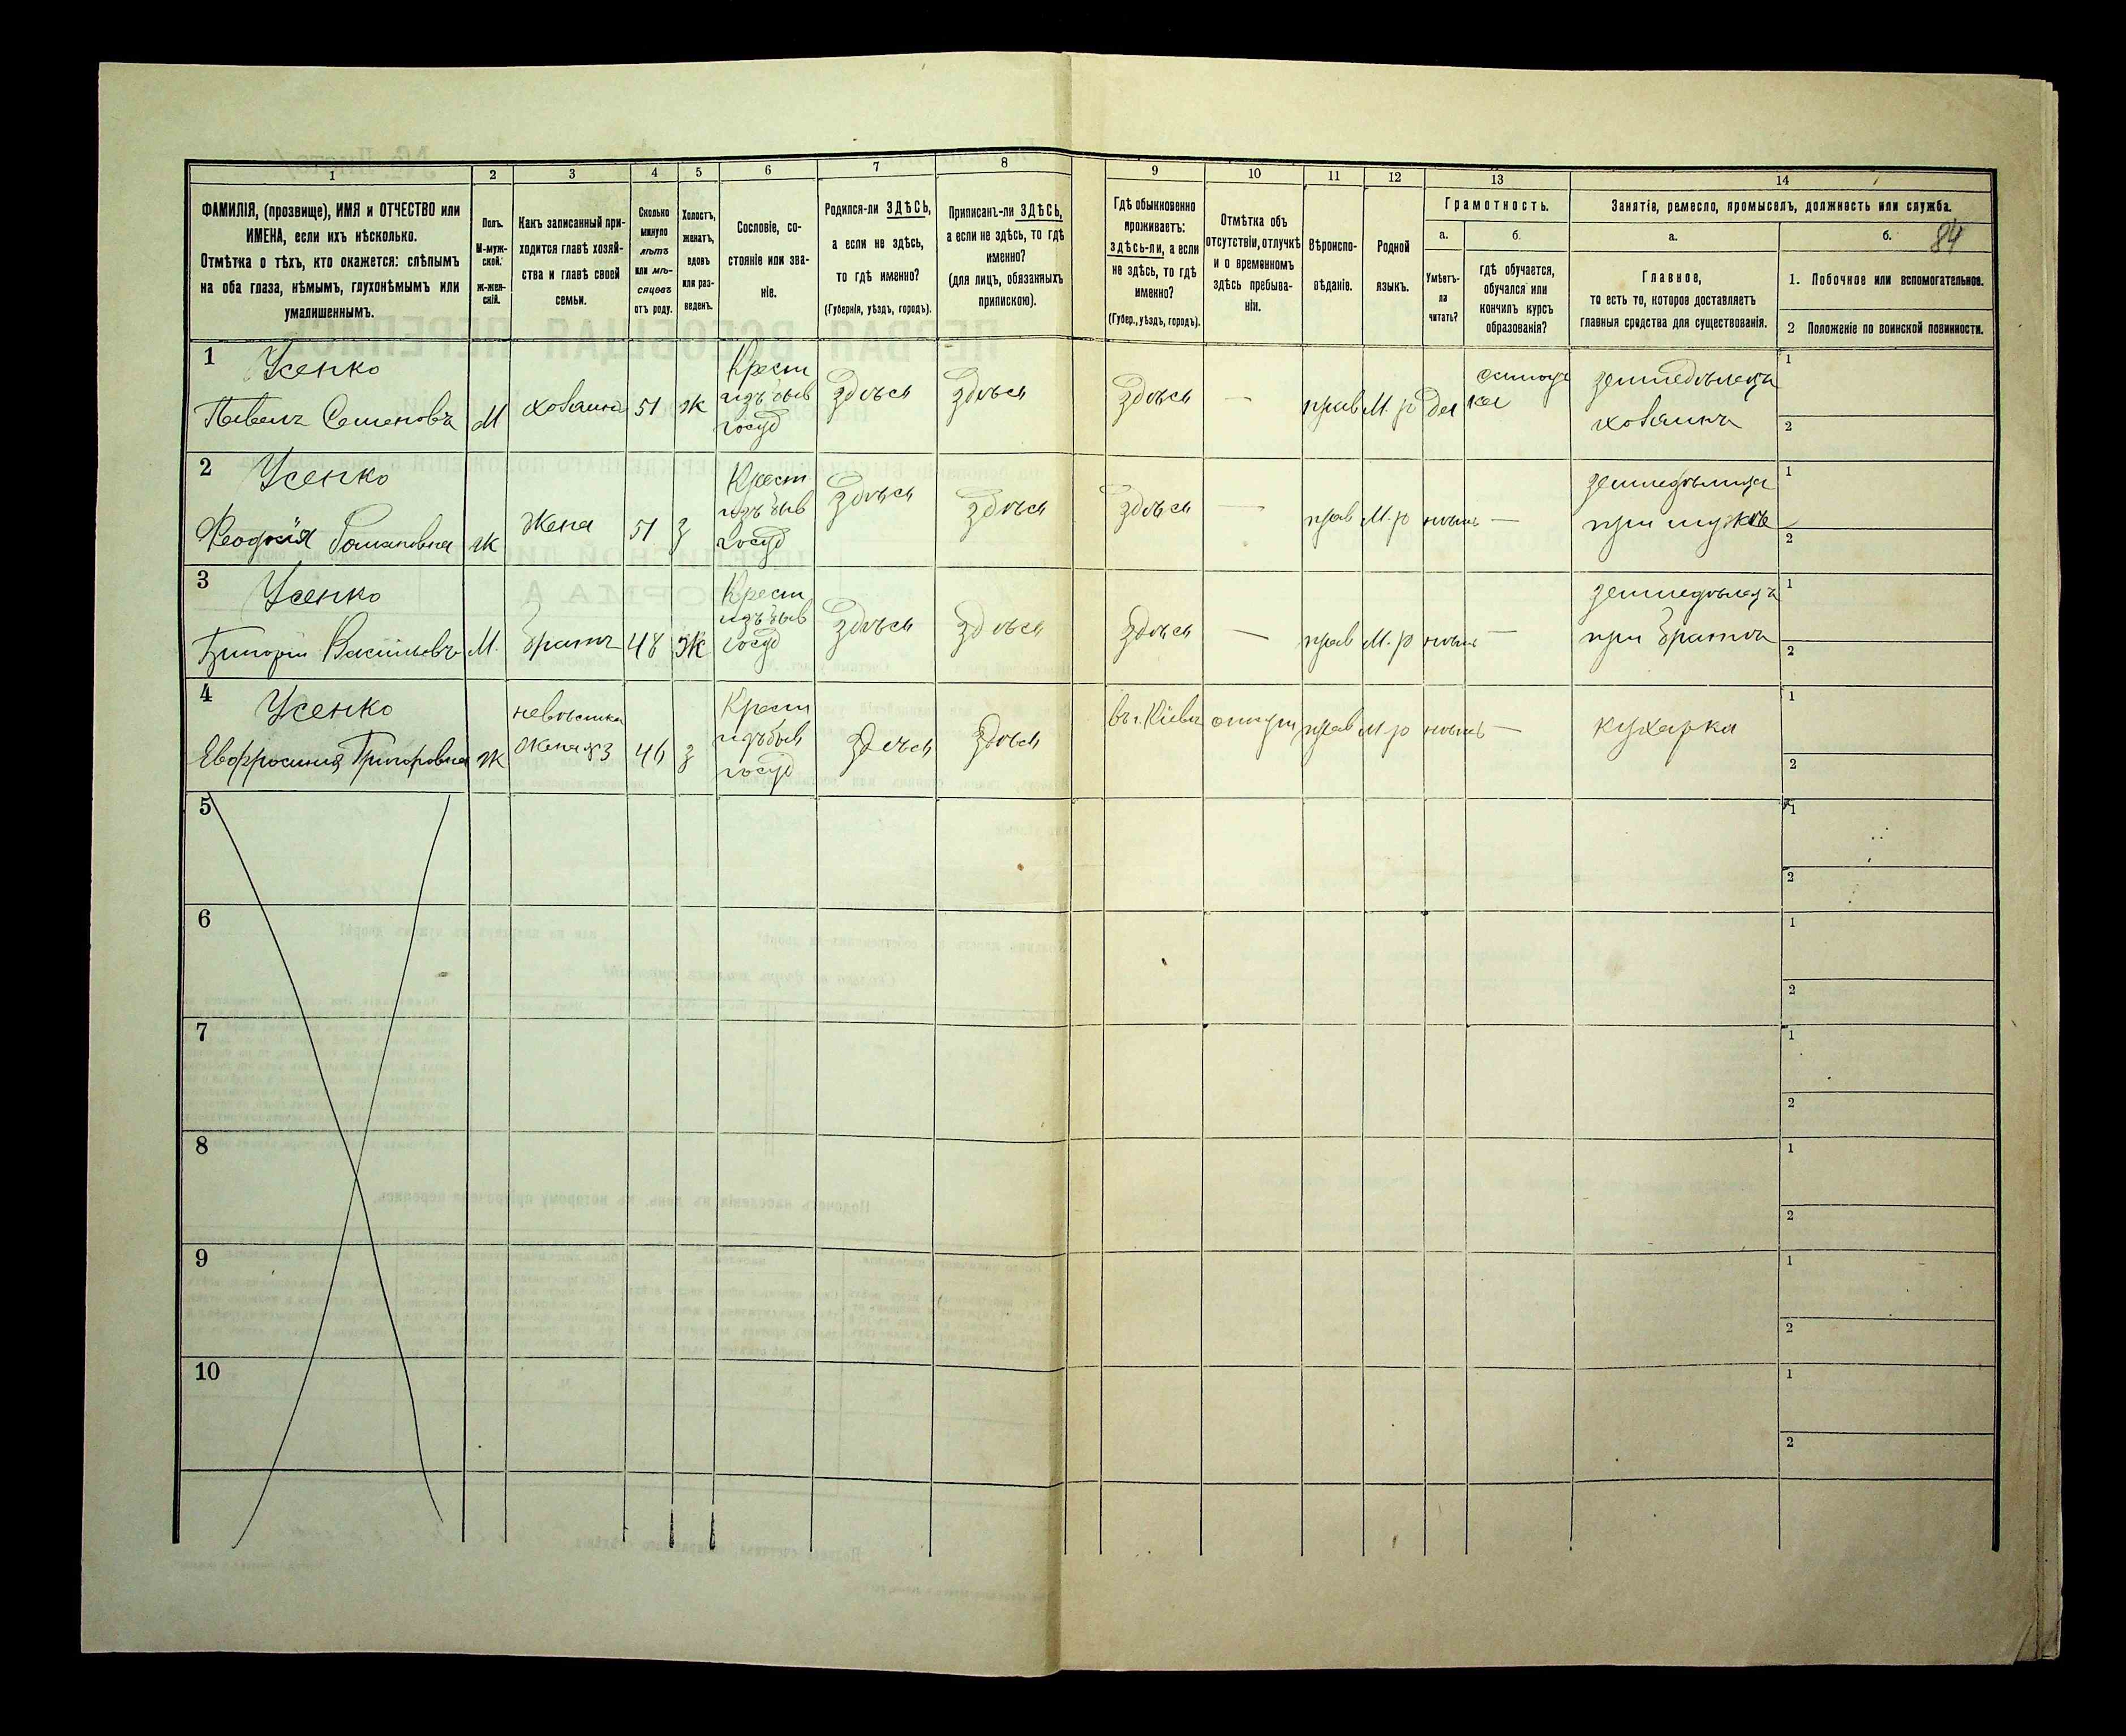 1 2 3 4 5 6 7 8 9 10 11 12 13 14
ФАМИЛІЯ, (прозвище), ИМЯ и ОТЧЕСТВО или
ИМЕНА, если ихъ нѣсколько.
Отмѣтка о тѣхъ, кто окажется: слѣпымъ
на оба глаза, нѣмымъ, глухонѣмымъ или
умалишеннымъ.
Полъ.
М-муж-
ской.
ж-жен-
скій.
Какъ записанный при-
ходится главѣ хозяй-
ства и главѣ своей
семьи.
Сколько
минуло
лѣтъ
или мѣ-
сяцевъ
отъ роду.
Холостъ,
женатъ,
вдовъ
или раз-
веденъ.
Сословіе, со-
стояніе или зва-
ніе.
Родился-ли ЗДѢСЬ,
а если не здѣсь,
то гдѣ именно?
(Губернія, уѣздъ, городъ).
Приписанъ-ли ЗДѢСЬ,
а если не здѣсь, то гдѣ
именно?
(для лицъ, обязанныхъ
припискою).
Гдѣ обыкновенно
проживаетъ:
здѣсь-ли, а если
не здѣсь, то гдѣ
именно?
(Губер., уѣздъ, городъ).
Отмѣтка объ
отсутствіи, отлучкѣ
и о временномъ
здѣсь пребыва-
ніи.
Вѣроиспо-
вѣданіе.
Родной
языкъ.
Грамотность.
а.
Умѣетъ-
ли
читать?
б.
гдѣ обучается,
обучался или
кончилъ курсъ
образованія?
Занятія, ремесло, промыселъ, должность или служба.
а.
Главное,
то есть то, которое доставляетъ
главныя средства для существованія.
б.
84
1. Побочное или вспомогательное.
2 Положеніе по воинской повинности.
1 Усенко
Павелъ Семеновъ М хозяинъ 51 ж
Крест
изъ быв
госуд
здѣсь здѣсь здѣсь — прав М. р да
земледѣлецъ
хозяинъ
1
2
2 Усенко
Феодосія Романовна ж Жена 51 з
Крест
изъ быв
госуд
здѣсь здѣсь здѣсь — прав М. р нѣтъ —
при мужѣ
1
2
3 Усенко
Григорій Васильевъ М. братъ 48 ж
Крест
изъ быв
госуд
здѣсь здѣсь здѣсь — прав М. р нѣтъ —
земледѣлецъ
при братѣ
1
2
4 Усенко
Евфросинія Григоровна ж
невѣстка
жена №3 46 з
Крест
изъ быв
госуд
здѣсь здѣсь въ г. Кіевѣ прав М р нѣтъ — кухарка
1
2
5 1
2
6 1
2
7 1
2
8 1
2
9 1
2
10 1
2